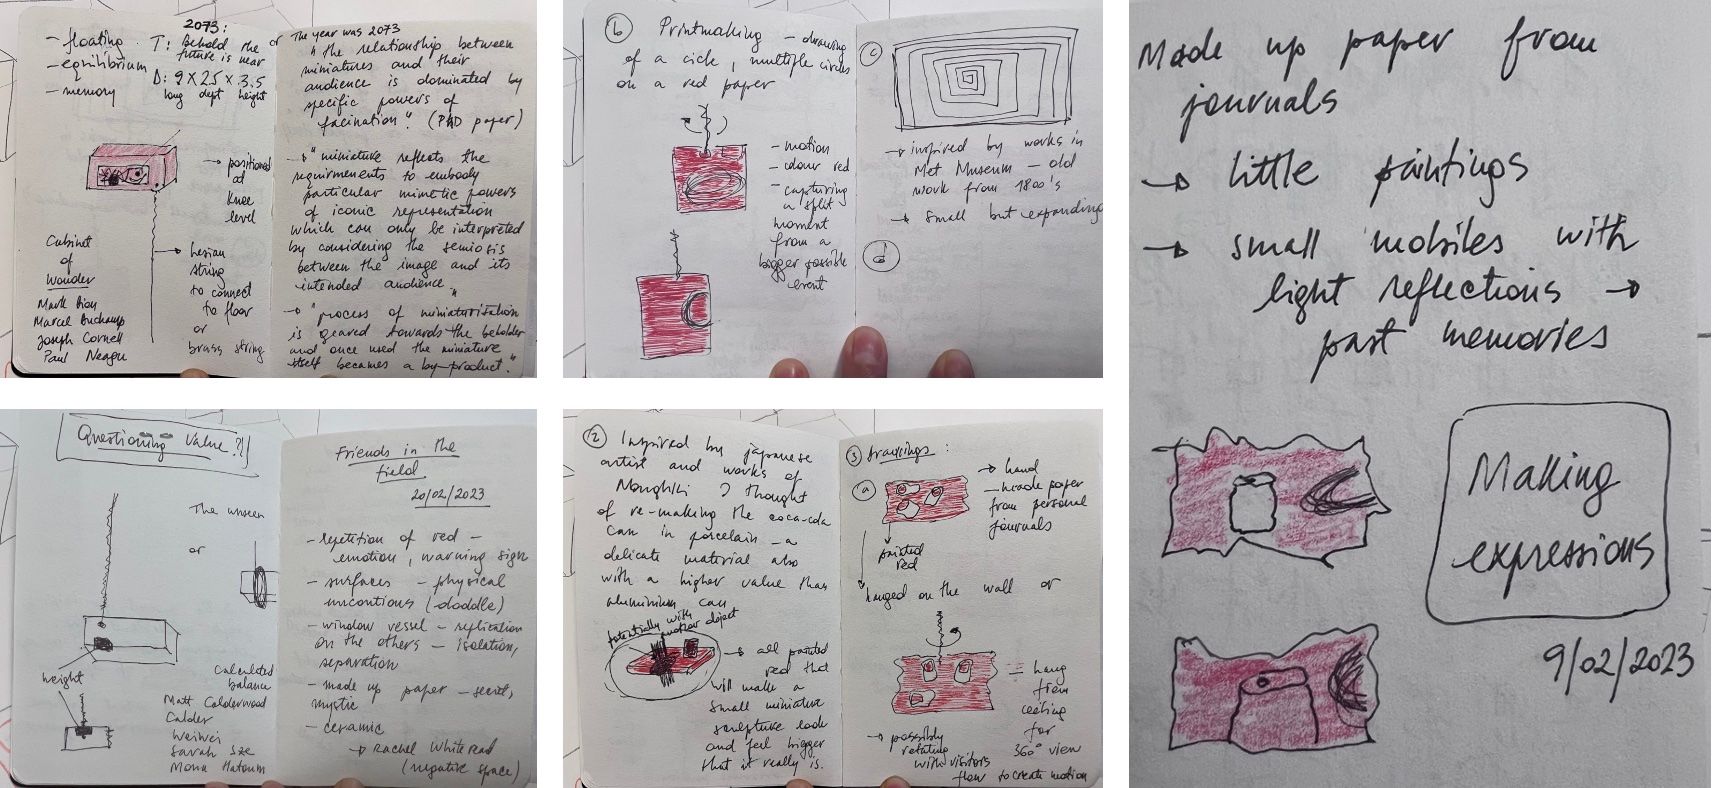 2073:
- floating
- equilibrium
- memory
T: Behold the or
future is near
D: 9 x 25 x 3.5
long dept height
→ positioned
at
knee
level
Cabinet
of
Wonder
Mark Dion
Marcel Duchamp
Joseph Cornell
Paul Neagu
→ hesian
string
to connect
to floor
or
brass string
The year was 2073
" the relationship between
miniatures and their
audience is dominated by
specific powers of
facination". (PHD paper)
→ " miniature reflects the
requirments to embody
particular mimetic powers
of iconic representation
which can only be interpreted
by considering the semiosis
between the image and its
intended audience "
→ " process of miniaturisation
is geared towards the beholder
and once used the miniature
itself becomes a by-product."
b Printmaking - drawing
of a cicle, multiple circles
on a red paper
- motion
- colour red
- capturing
a split
moment
from a
bigger possible
event
c
→ inspired by works in
Met Museum - old
work from 1800's
→ small but expanding
d
Made up paper from
journals
→ little paintings
→ small mobiles with
light reflections →
past memories
Making
expressions
9/02/2023
Questioning Value?!
The unseen
or
weight
Calculated
balance
Matt Calderwood
Calder
Weiwei
Sarah Sze
Mona Hatoum
Friends in the
field
20/02/2023
- repetition of red -
emotion, warning sign
- surfaces - physical
uncontious (doddle)
- window vessel - replication
on the others - isolation,
separation
- made up paper - secret,
mystic
- ceramic
→ Rachel Whiteread
(negative space)
2 Inspired by japanese
artist and works of
I thought
of re-making the coca-cola
can in porcelain - a
delicate material also
with a higher value than
aluminium can
potentially with
another object
→ all painted
red that
will make a
small miniature
sculpture look
and feel bigger
that it really is.
3 Drawings:
a
→ hand
-made paper
from personal
journals
painted
red
hanged on the wall or
= hang
from
ceeling
for
360° view
→ possibly
rotating
with visitors
flow to create motion